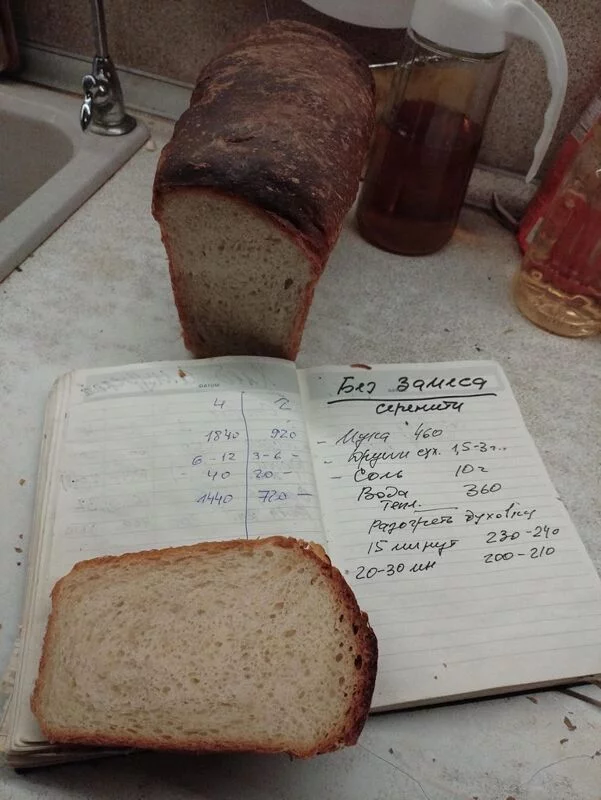 4 2
1840 920
6-12 3-6 -
40 20 -
1440 720 -
Без Замеса
серенити
- Мука 460
- Дрожжи сух. 1,5-3г.
- Соль 10 г
Вода 360
тепл.
Разогреть духовку
15 минут 230-240
20-30 мн 200-210